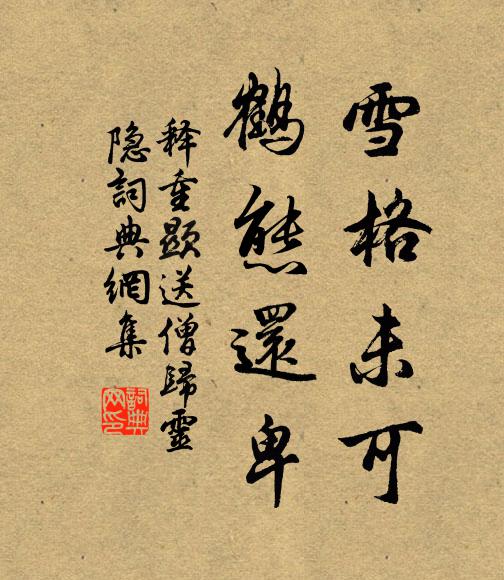 雪格未可
鶴態還卑
释重顯送僧歸靈
隐詞典網集
詞典
网印